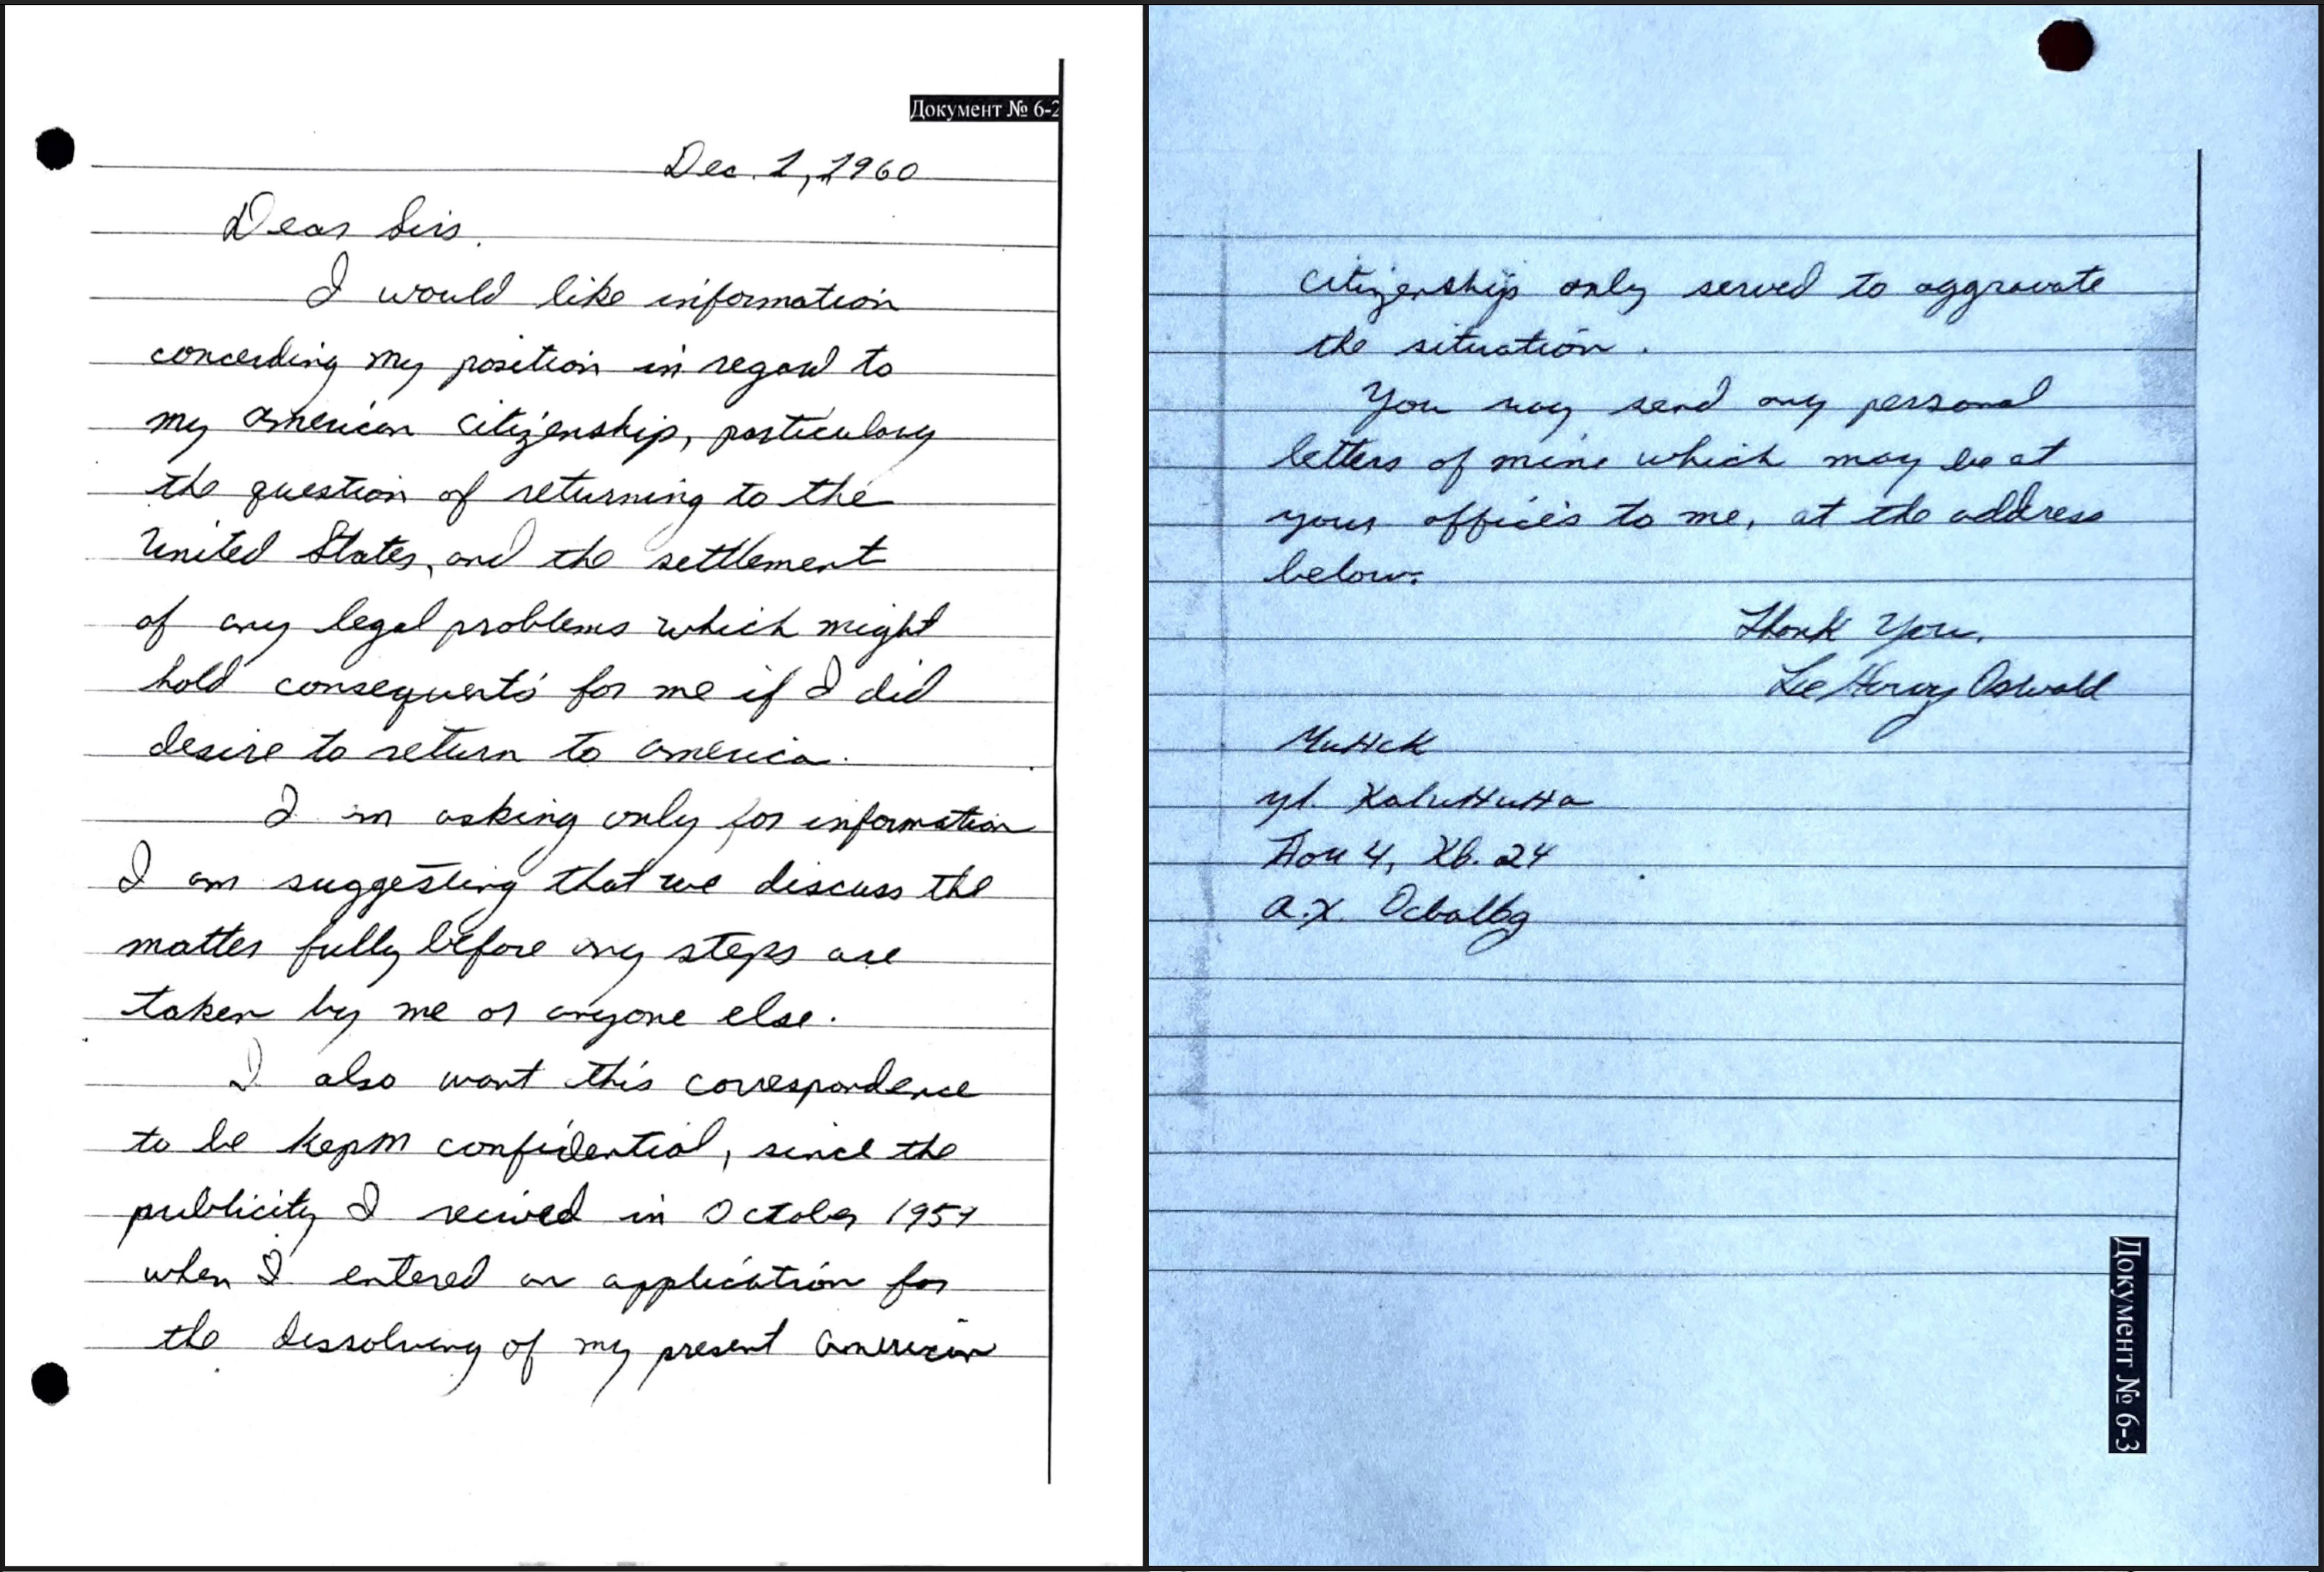 Документ № 6-2
Dec. 1, 1960
Dear Sirs.
I would like information
concerding my position in regard to
my American citizenship, particulary
the question of returning to the
United States, and the settlement
of any legal problems which might
hold consequents for me if I did
desire to return to America.
I im asking only for information
I am suggesting that we discuss the
matter fully before any steps are
taken by me or anyone else.
I also want this correspondence
to be kepm confidential, since the
publicity I recived in October 1959
when I entered an application for
the dissolving of my present American
citizenship only served to aggravate
the situation.
You may send any personal
letters of mine which may be at
your offices to me, at the address
below.
Thank You,
Lee Harvey Oswald
Минск
ул. Калинина
Дом 4, Кв. 24
А.Х. Освальд
Документ № 6-3